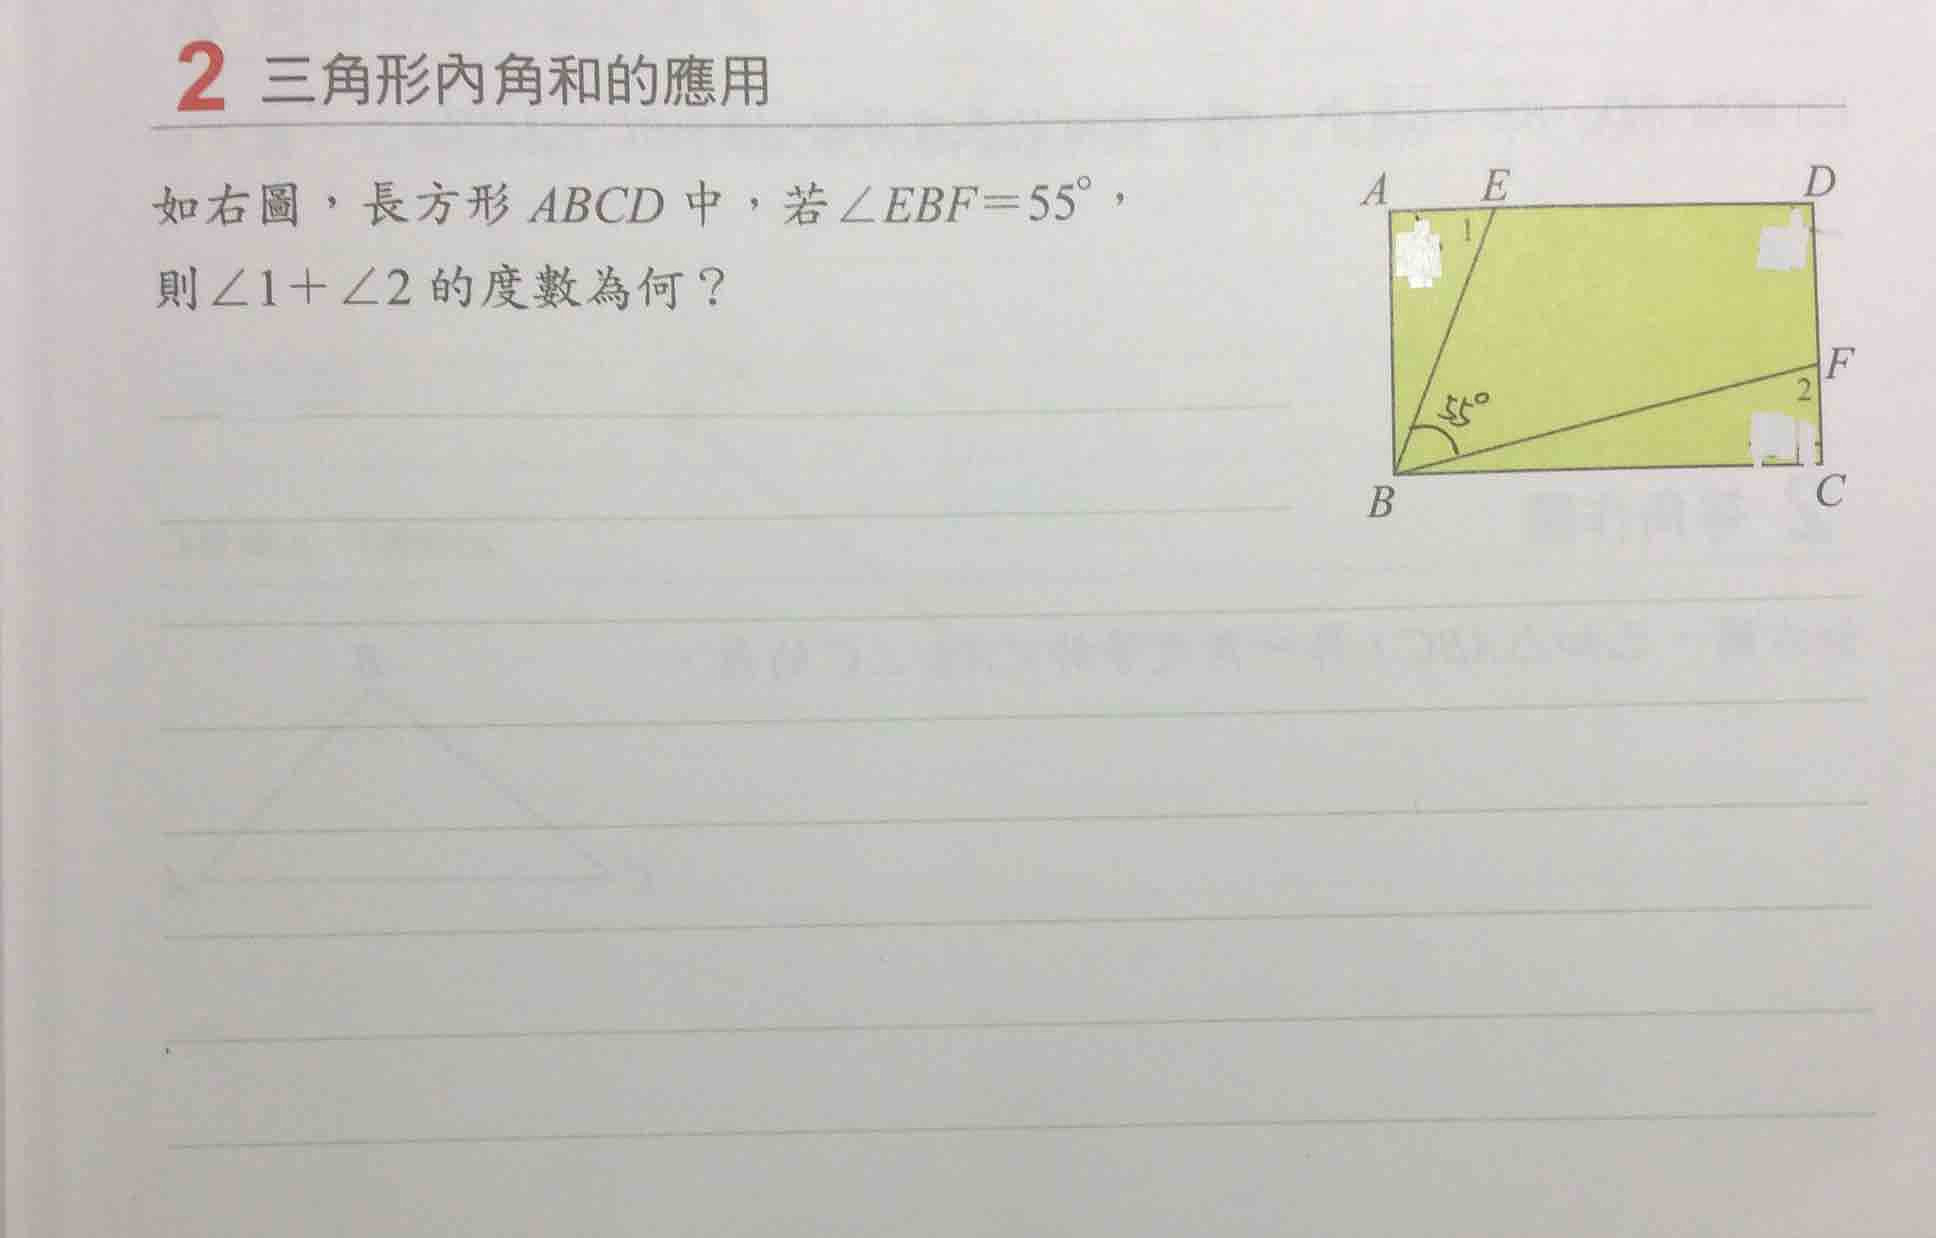 2 三角形內角和的應用
如右圖，長方形 ABCD 中，若∠EBF=55°，
則∠1+∠2 的度數為何？
A E D
1
F
2
55°
B C